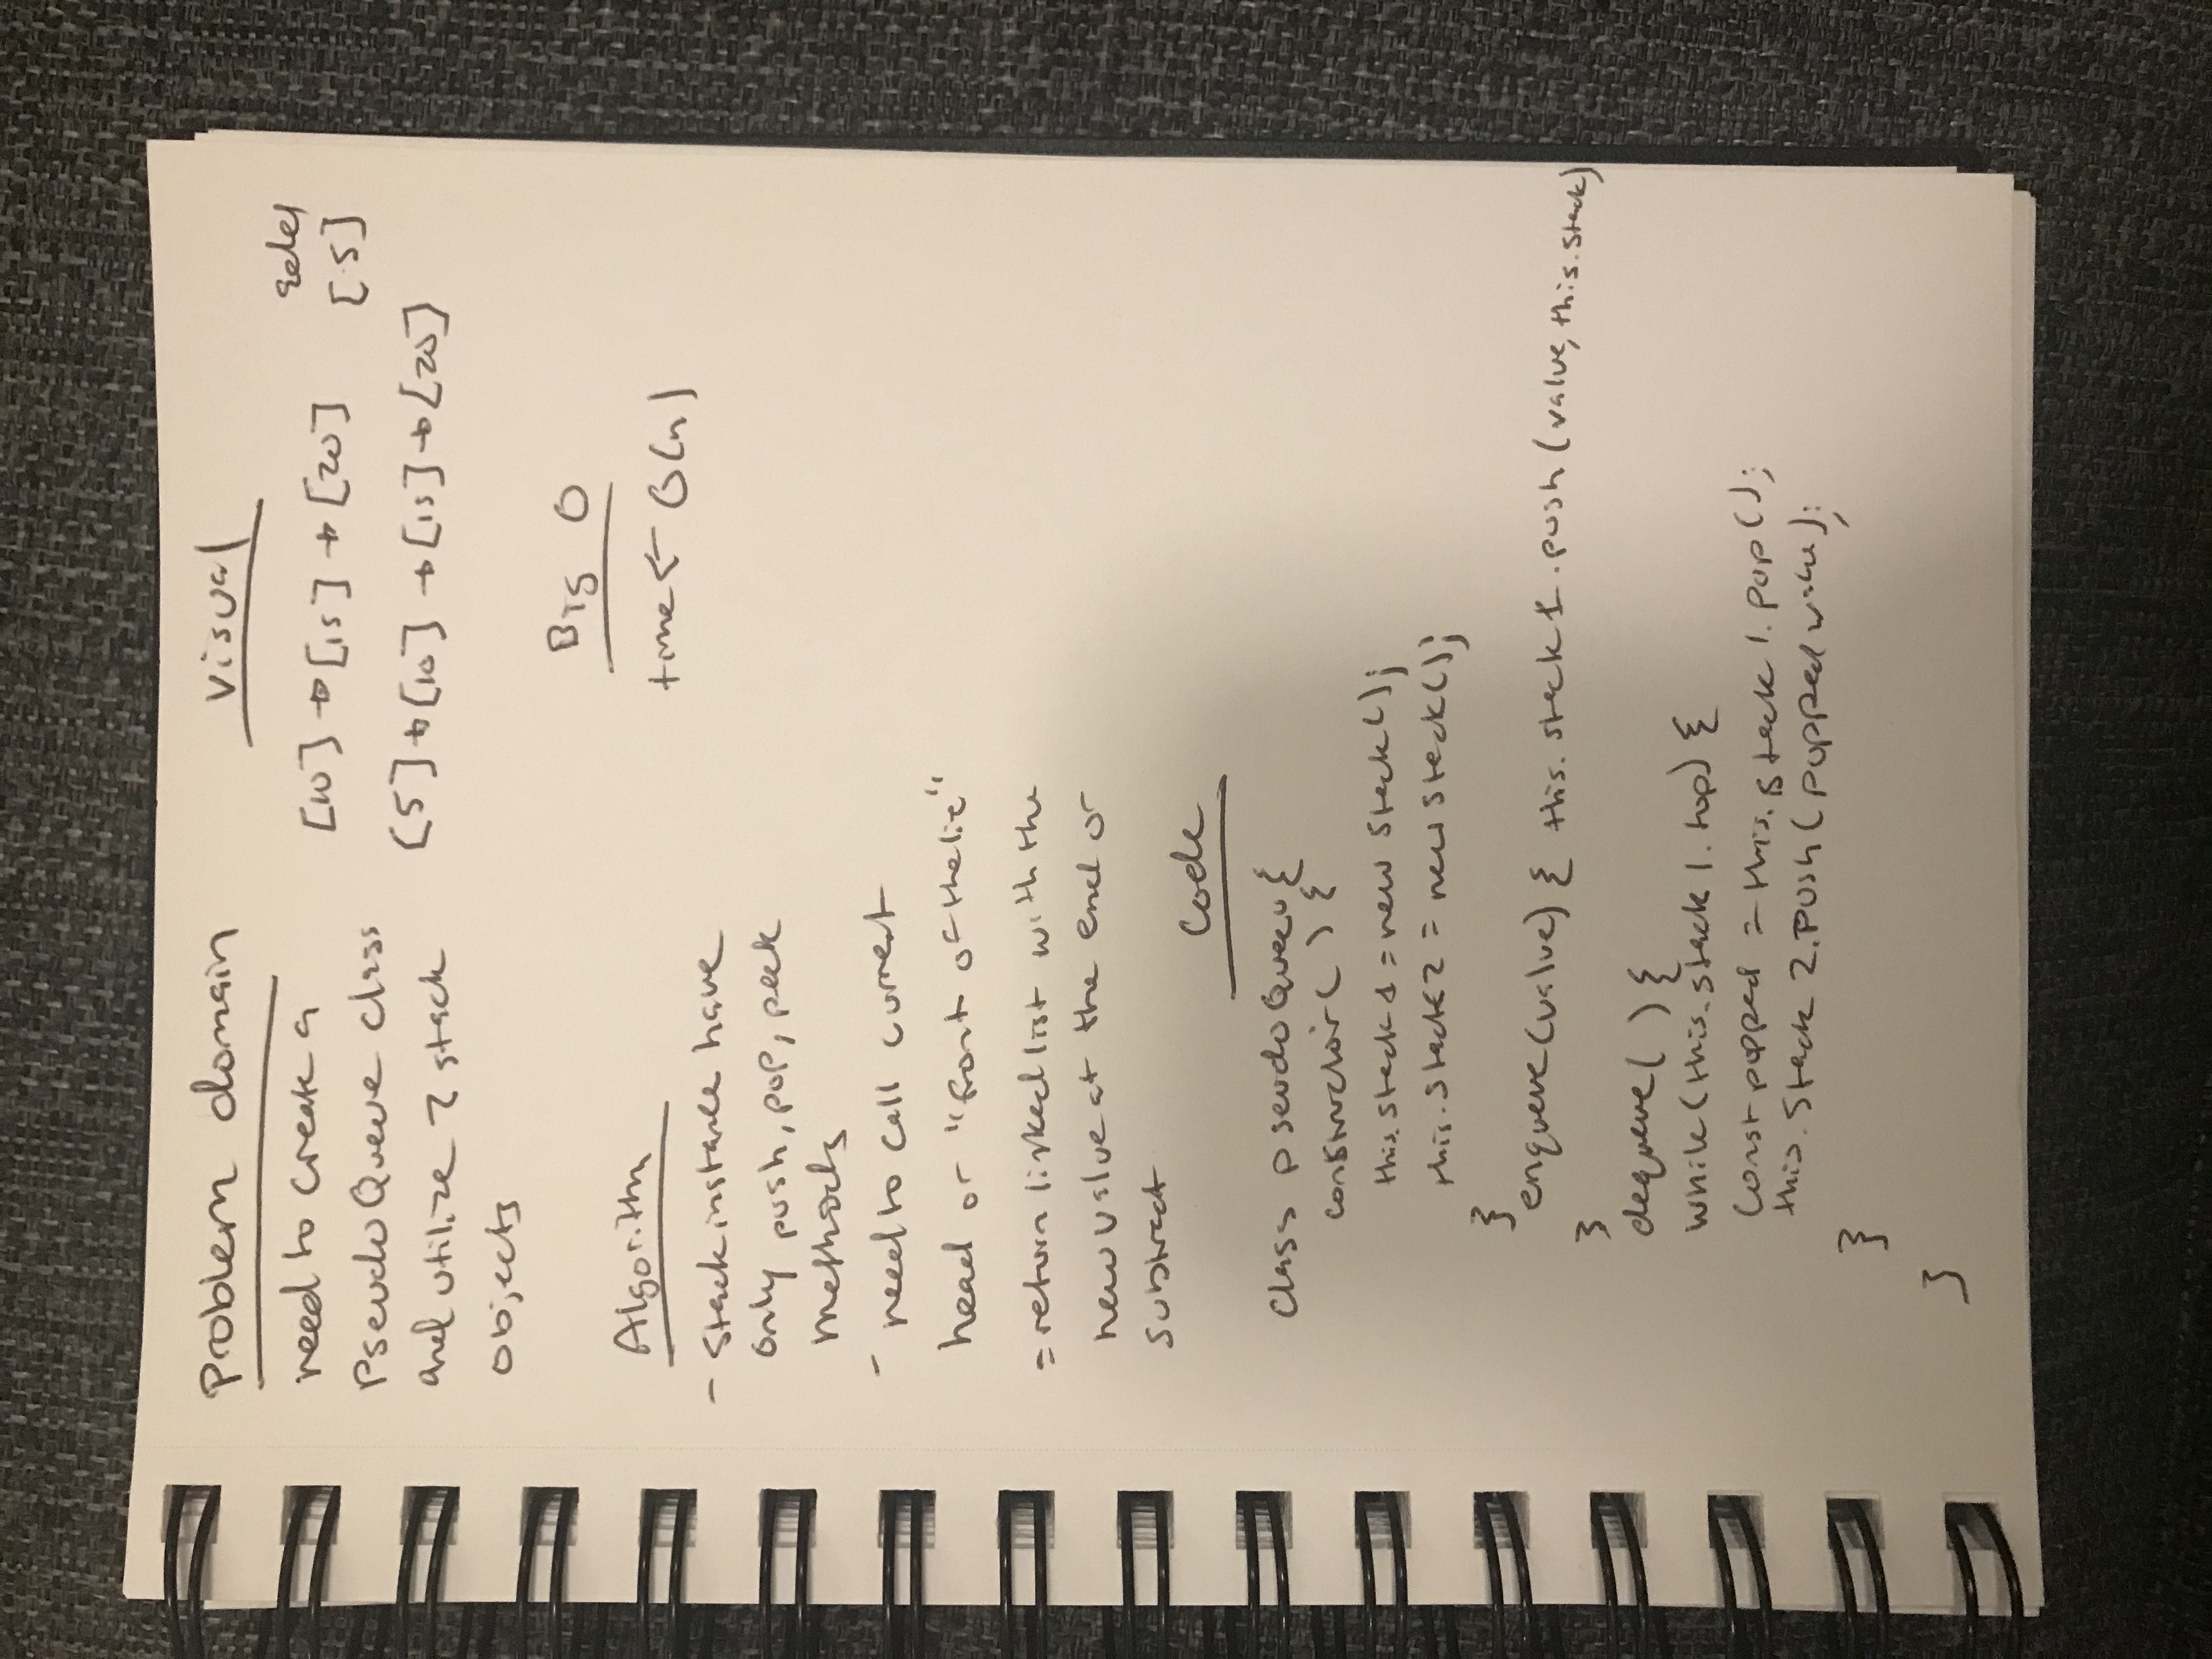 Problem domain
need to create a
PseudoQueue class
and utilize 2 stack
objects
Visual
add
[10] → [15] → [20] [5]
[5] → [10] → [15] → [20]
Big O
time ← O(n)
Algorithm
- Stack instance have
only push, pop, peek
methods
- need to call current
head or "front of the line"
= return linked list with the
new value at the end or
subtract
Code
class pseudoQueeu {
constructor( ) {
this.stack1 = new Stack();
this.stack2 = new Stack();
}
enqueue(value) { this.stack1.push(value, this.stack)
}
dequeue( ) {
while(this.stack1.top) {
const popped = this.stack1.pop();
this.stack2.push(popped value);
}
}